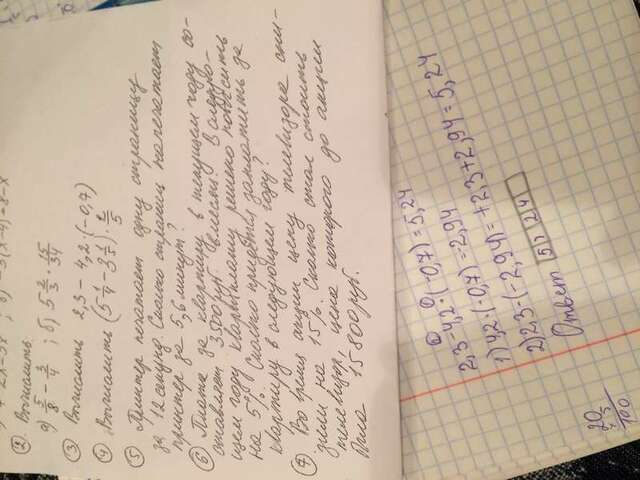 ② Вычислить
а) 5/8 − 3/4 ; б) 5 2/3 · 15/34
③ Вычислить 2,3 − 4,2 · (−0,7)
④ Вычислить (5 1/4 − 3 1/5) · 2/5
⑤ Принтер печатает одну страницу
за 12 секунд. Сколько страниц напечатает
принтер за 5,6 минут?
⑥ Плата за квартиру в текущем году со-
ставляет 3500 руб в месяц. В следую-
щем году квартплату решено повысить
на 5%. Сколько придётся заплатить за
квартиру в следующем году?
⑦ Во время акции цену телевизора сни-
зили на 15%. Сколько стал стоить
телевизор, цена которого до акции
была 15800 руб.
2,3 − 4,2 · (−0,7) = 5,24
1) 4,2 · (−0,7) = −2,94
2) 2,3 − (−2,94) = +2,3 + 2,94 = 5,24
Ответ 5 , 2 4
20
× 5
100